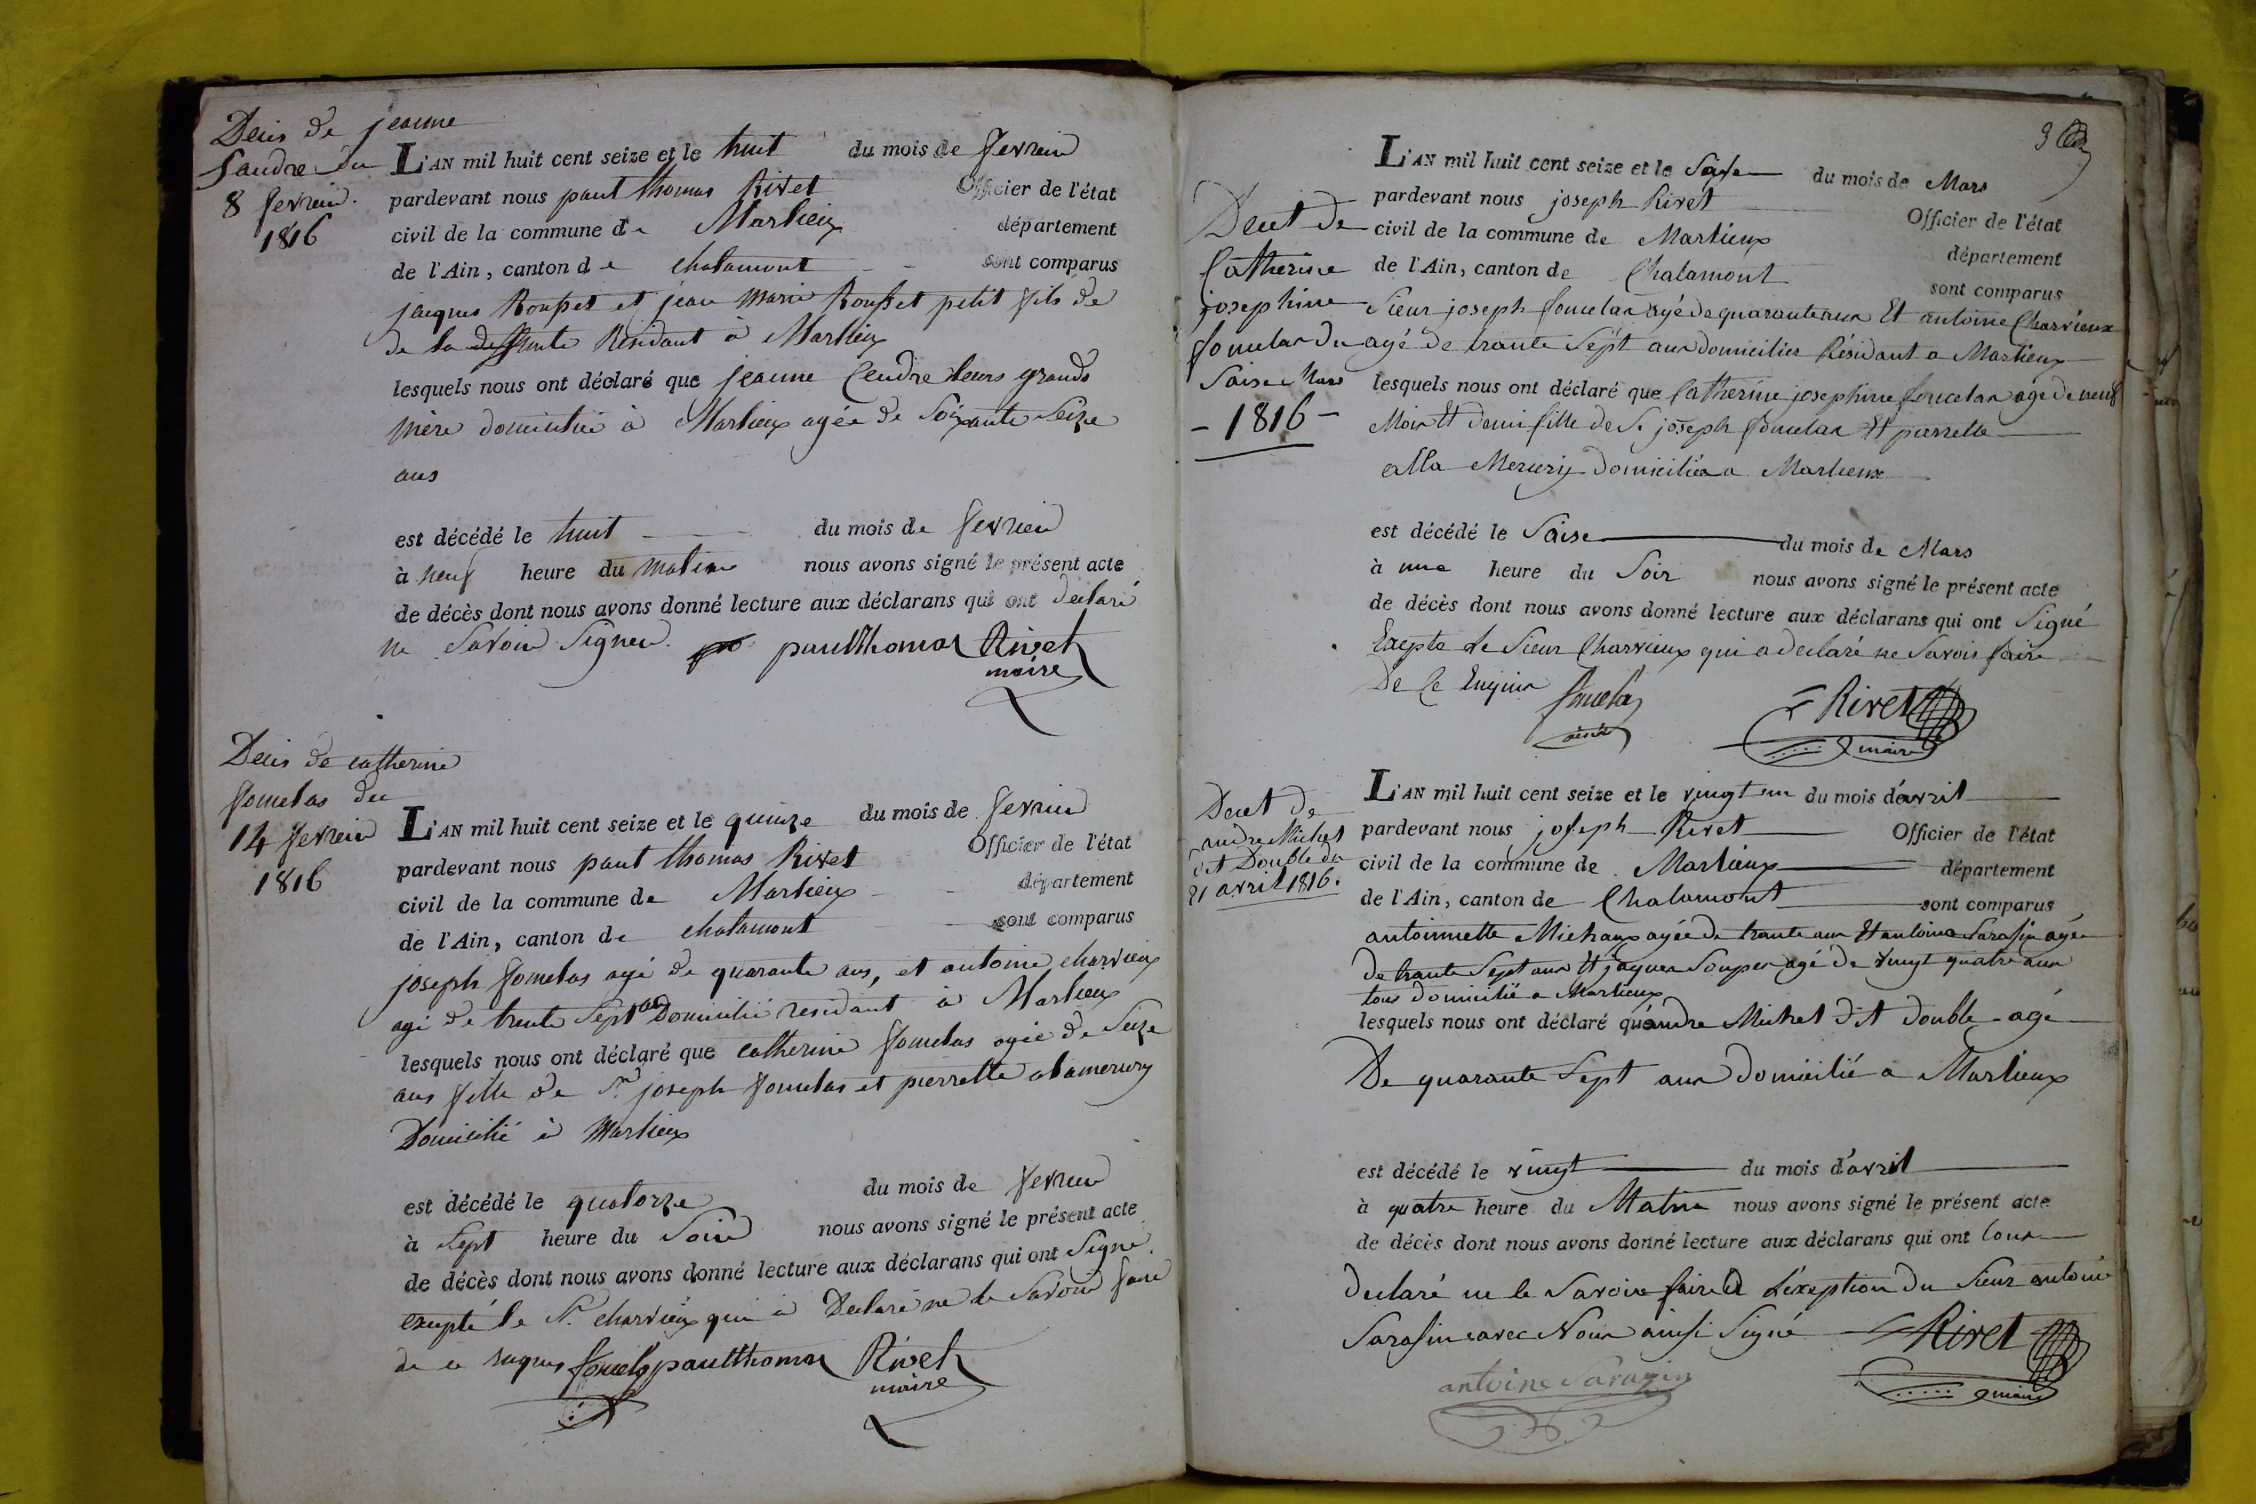 Decès de jeanne
Sandre du
8 fevrier
1816
L'AN mil huit cent seize et le huit du mois de fevrier
pardevant nous paul thomas Rivet Officier de l'état
civil de la commune de Marlieux département
de l'Ain, canton de chalamont sont comparus
jacques Rousset et jean marie Rousset petit fils de
de la deffunte Residant à Marlieux
lesquels nous ont déclaré que jeanne Cendre leurs grands
mère domicilié à Marlieux agée de Soixante Seize
ans
est décédé le huit du mois de fevrier
à neuf heure du matin nous avons signé le présent acte
de décès dont nous avons donné lecture aux déclarans qui ont déclaré
ne Savoir Signer. paul thomas Rivet
maire
Decès de catherine
fomelas du
14 fevrier
1816
L'AN mil huit cent seize et le quinze du mois de fevrier
pardevant nous paul thomas Rivet Officier de l'état
civil de la commune de Marlieux département
de l'Ain, canton de chalamont sont comparus
joseph fomelas agé de quarante ans, et antoine charvieux
agé de trente Sept ans Domicilié residant à Marlieux
lesquels nous ont déclaré que catherine fomelas agée de Seize
ans fille de Sr. joseph fomelas et pierrette alamercery
Domicilié à Marlieux
est décédé le quatorze du mois de fevrier
à Sept heure du Soir nous avons signé le présent acte
de décès dont nous avons donné lecture aux déclarans qui ont Signé.
excepté le Sr. charvieux qui à Declaré ne le Savoir faire
de ce requis paul thomas Rivet
maire
3
Decet de
Catherine
josephine
du
Saise Mars
- 1816 -
L'AN mil huit cent seize et le Saise du mois de Mars
pardevant nous joseph Rivet Officier de l'état
civil de la commune de Marlieux département
de l'Ain, canton de Chalamont sont comparus
Sieur joseph agé de quarante aux Et antoine Charvieux
agé de trante Sépt aux domicilier Résidant a Marlieux
lesquels nous ont déclaré que Catherine josephine agé de neuf
Moix Et demi fille de Sr joseph Et pierrette
alla Mercery Domiciliéa Marlieux
est décédé le Saise du mois de Mars
à une heure du Soir nous avons signé le présent acte
de décès dont nous avons donné lecture aux déclarans qui ont Signé
Exepte le Sieur Charvieux qui a declaré ne Savoir faire
De Ce
ainé
J Rivet
maire
Decet de
andre Michel
dit Double du
21 avril 1816.
L'AN mil huit cent seize et le vingt un du mois d'avril
pardevant nous joseph Rivet Officier de l'état
civil de la commune de Marlieux département
de l'Ain, canton de Chalamont sont comparus
antoinnette Michaux agée de trante aux Et antoine Sarasin agée
de trante Sept aux Et jaques Souper agé de vingt quatre aux
tous domicilié a Marlieux
lesquels nous ont déclaré qu'andre Michel dit double agé
De quarante Sept aux domicilié a Marlieux
est décédé le vingt du mois d'avril
à quatre heure du Matin nous avons signé le présent acte
de décès dont nous avons donné lecture aux déclarans qui ont tous
declaré ne le Savoir faire a L'exeption du Sieur antoine
Sarasin avec Nous ainsi Signé J Rivet
maire
antoine Sarazin